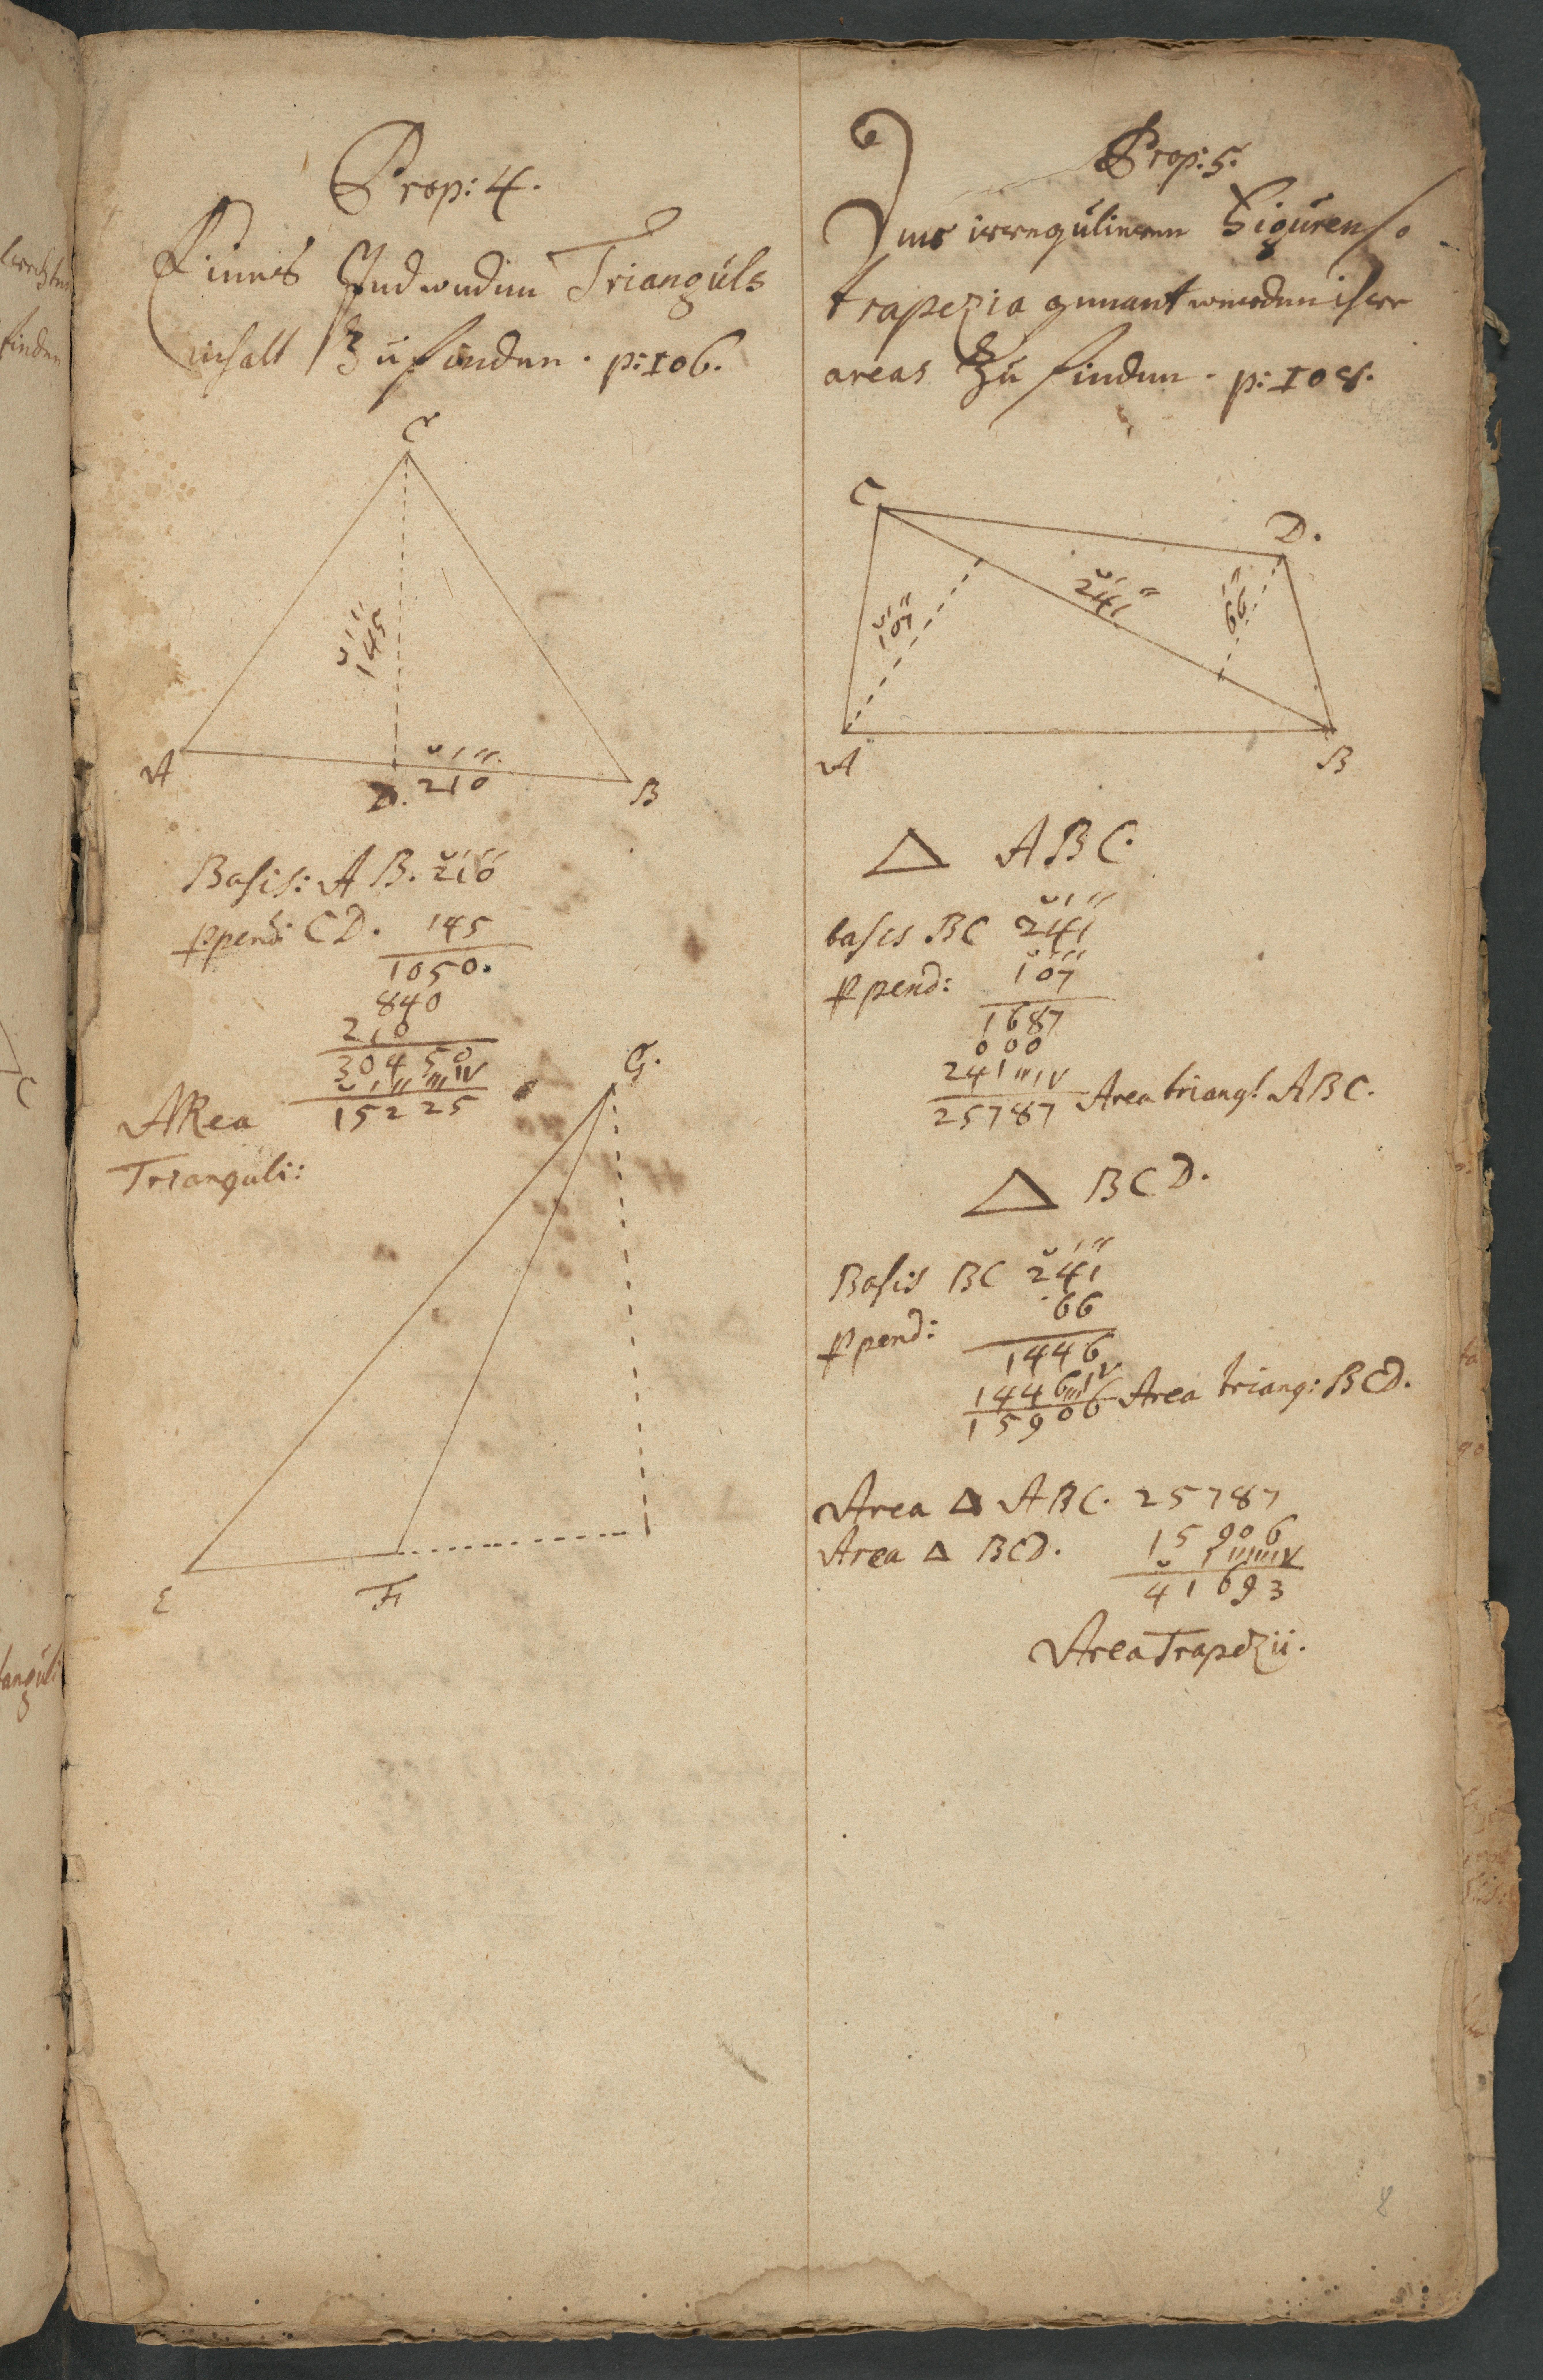 Prop: 4.
Eines Jedweden Triangüls
inhalt zü finden. p: 106.
C
145
A
D. 210
B
Basis: A B. 210
ppend: CD. 145
1050.
840
210
30450
ARea 15225
Trianguli:
G.
E
F
Prop: 5.
Der irregülieren Figüren so
trapezia genant werden ihre
areas zü finden. p: 108.
C
D.
107
241
66
A
B
△ ABC.
basis BC 241
ppend: 107
1687
000
241
25787 Area triang: ABC.
△ BCD.
Basis BC 241
ppend: 66
1446
1446
15906 Area triang: BCD.
Area △ ABC. 25787
Area △ BCD. 15906
41693
Area Trapezii.
8